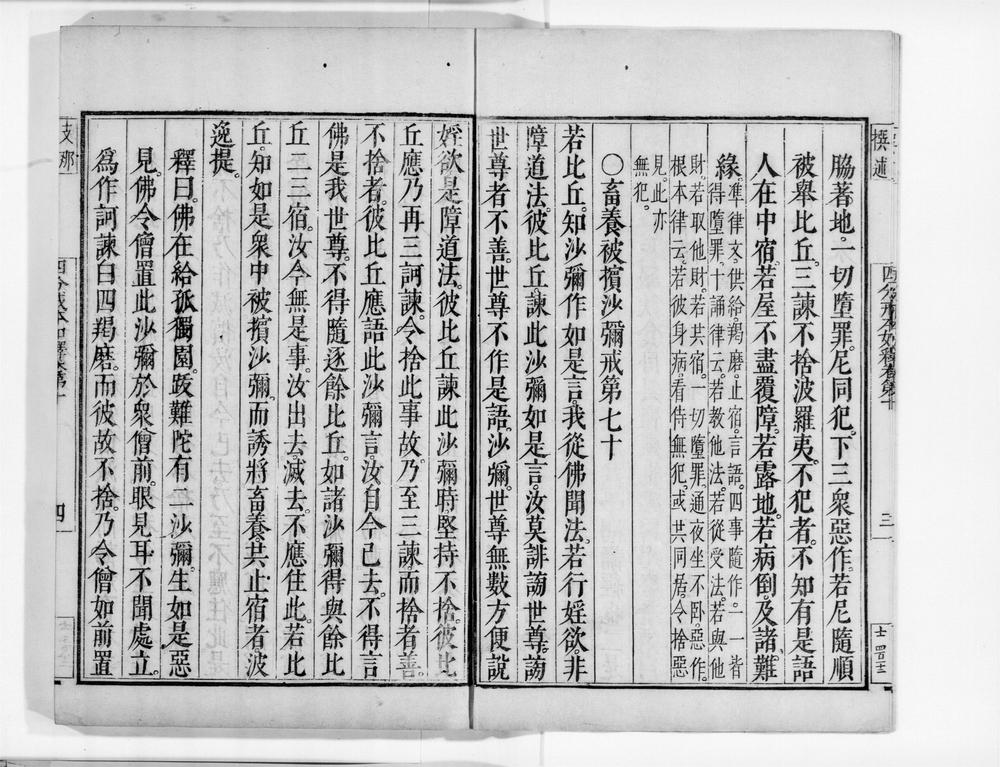 脇著地一切墮罪尼同犯下三衆惡作若尼隨順
被舉比丘三諫不捨波羅夷不犯者不知有是語
人在中宿若屋不盡覆障若露地若病倒及諸難
緣準律文供給羯磨止宿言語四事隨作一一皆
得墮罪十誦律云若教他法若從受法若與他
財若取他財若共宿一切墮罪通夜坐不卧惡作
根本律云若彼身病看侍無犯或共同居令捨惡
見此亦
無犯
〇畜養被擯沙彌戒第七十
若比丘知沙彌作如是言我從佛聞法若行婬欲非
障道法彼比丘諫此沙彌如是言汝莫誹謗世尊謗
世尊者不善世尊不作是語沙彌世尊無數方便說
婬欲是障道法彼比丘諫此沙彌時堅持不捨彼比
丘應乃再三訶諫令捨此事故乃至三諫而捨者善
不捨者彼比丘應語此沙彌言汝自今已去不得言
佛是我世尊不得隨逐餘比丘如諸沙彌得與餘比
丘二三宿汝今無是事汝出去滅去不應住此若比
丘知如是衆中被擯沙彌而誘將畜養共止宿者波
逸提
釋曰佛在給孤獨園跋難陀有二沙彌生如是惡
見佛令僧置此沙彌於衆僧前眼見耳不聞處立
爲作訶諫白四羯磨而彼故不捨乃令僧如前置
撰述
三
支那
四